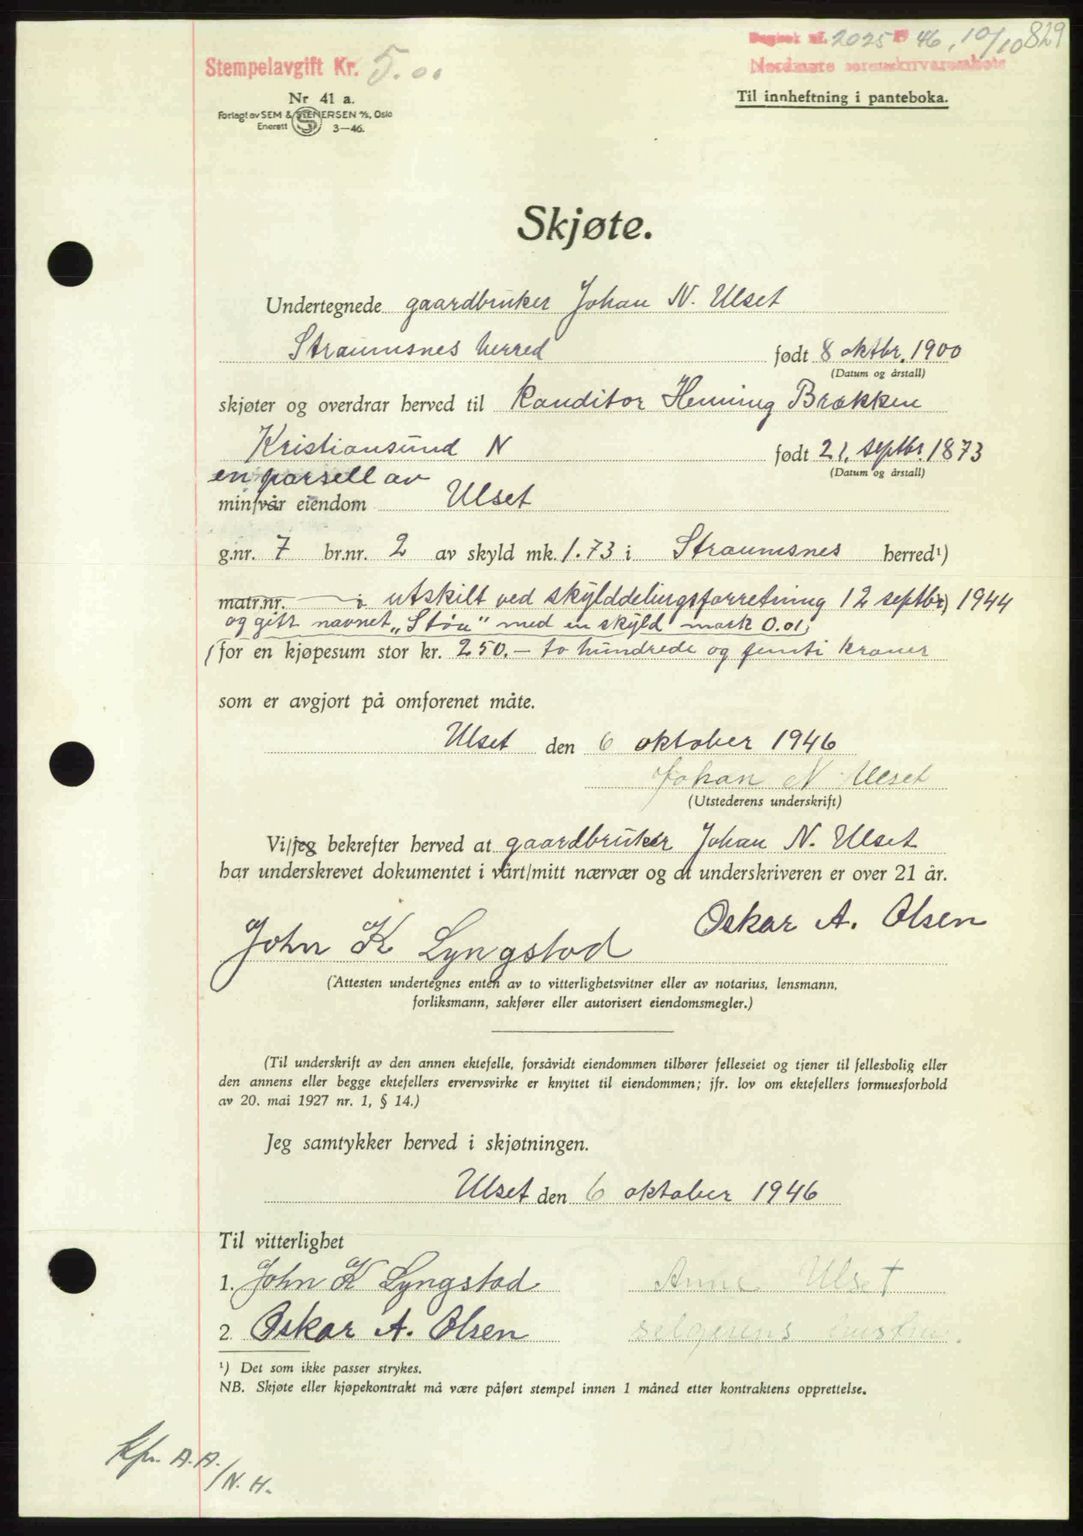 Dagbok nr. 2025 19 46, 10/10 829
Stempelavgift Kr. 5.00
Nordmøre sorenskriverembete
Nr 41 a.
Til innheftning i panteboka.
Forlagt av SEM & STENERSEN A/S, Oslo
Enerett S 3-46.
Skjøte.
Undertegnede gaardbruker Johan N. Ulset
Straumsnes herred født 8 oktbr. 1900
(Datum og årstall)
skjøter og overdrar herved til Kanditor Henning Brækken
Kristiansund N født 21. septbr. 1873
(Datum og årstall)
en parsell av
min/vår eiendom Ulset
g.nr. 7 br.nr. 2 av skyld mk. 1.73 i Straumsnes herred¹)
matr.nr. i utskilt ved skylddelingsforretning 12 septbr, 1944
og gitt navnet „Støa" med en skyld mark 0.01,
for en kjøpesum stor kr. 250.- to hundrede og femti kroner
som er avgjort på omforenet måte.
Ulset den 6 oktober 1946
Johan N Ulset
(Utstederens underskrift)
Vi/jeg bekrefter herved at gaardbruker Johan N. Ulset
har underskrevet dokumentet i vårt/mitt nærvær og at underskriveren er over 21 år.
Oskar A. Olsen
John K Lyngstad
(Attesten undertegnes enten av to vitterlighetsvitner eller av notarius, lensmann,
forliksmann, sakfører eller autorisert eiendomsmegler.)
(Til underskrift av den annen ektefelle, forsåvidt eiendommen tilhører felleseiet og tjener til fellesbolig eller
den annens eller begge ektefellers ervervsvirke er knyttet til eiendommen; jfr. lov om ektefellers formuesforhold
av 20. mai 1927 nr. 1, § 14.)
Jeg samtykker herved i skjøtningen.
Ulset den 6 oktober 1946
Til vitterlighet
1. John K Lyngstad Anne Ulset
2. Oskar A. Olsen selgerens hustru.
¹) Det som ikke passer strykes.
NB. Skjøte eller kjøpekontrakt må være påført stempel innen 1 måned etter kontraktens opprettelse.
Kfr. A.A.
/N.H.